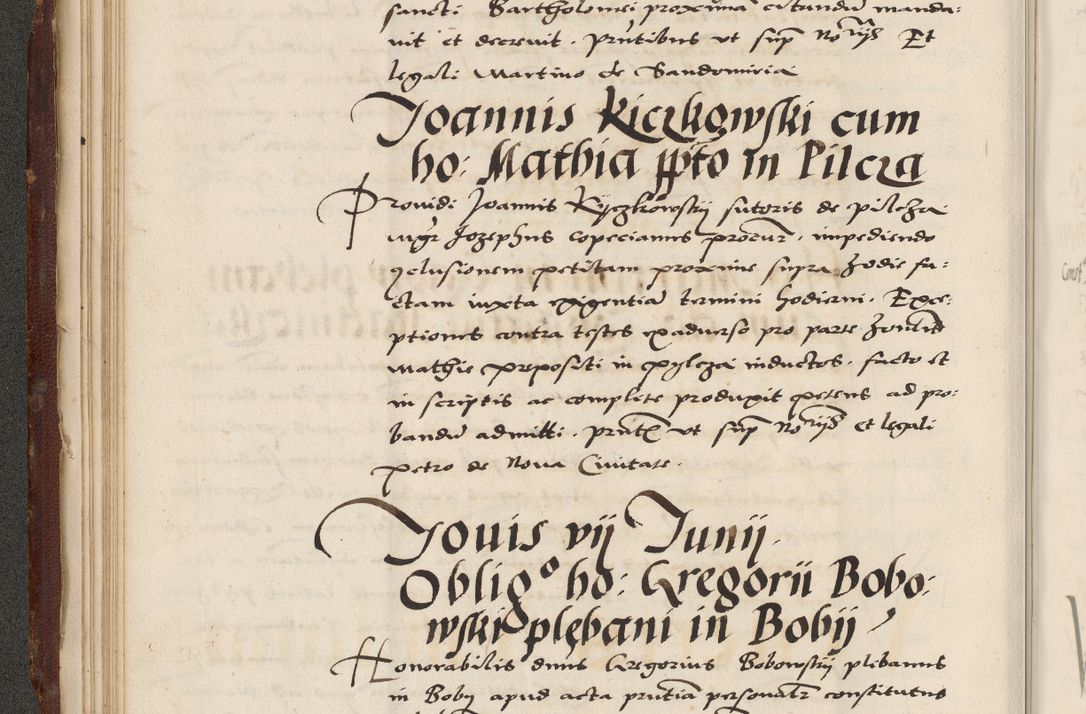 sancti Bartholomei proxima citandu manda:
uit et decreuit. Pñtibus vt sup Nořijs Et
legali Martino de Sandomiria
Joannis Kiczkowski cum
ho: Mathia ppto in Pilcza
Prouidi Joannis Kyczkowskij sutoris de pilcza
mgr Jozephus copecianus procur. impediendo
conclusionem petitam proxime supra hodie fa:
ctam iuxta exigentia termini hodierni. Exce:
ptiones contra testes ex aduerso pro parte honlis
Mathie prepositi in pylcza inductos. facto et
in scriptis ac complete produxit petens ad pro:
bandu admitti. pñtib vt sup Nořijs et legali
petro de Noua Ciuitate.
Jouis vij Junij.
Oblig° ho: Gregorii Bobo:
wski plębani in Bobij
Honorabilis dnus Gregorius Bobowskij plibanus
in Boby apud acta pñtia personalr constitutus